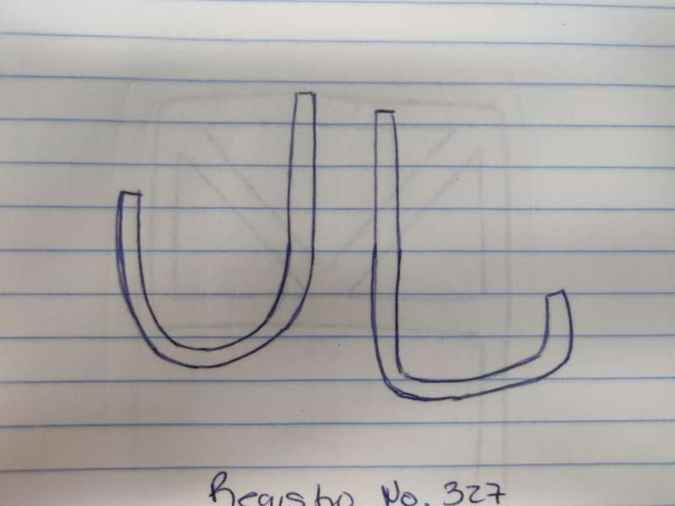 JL
Registro No. 327